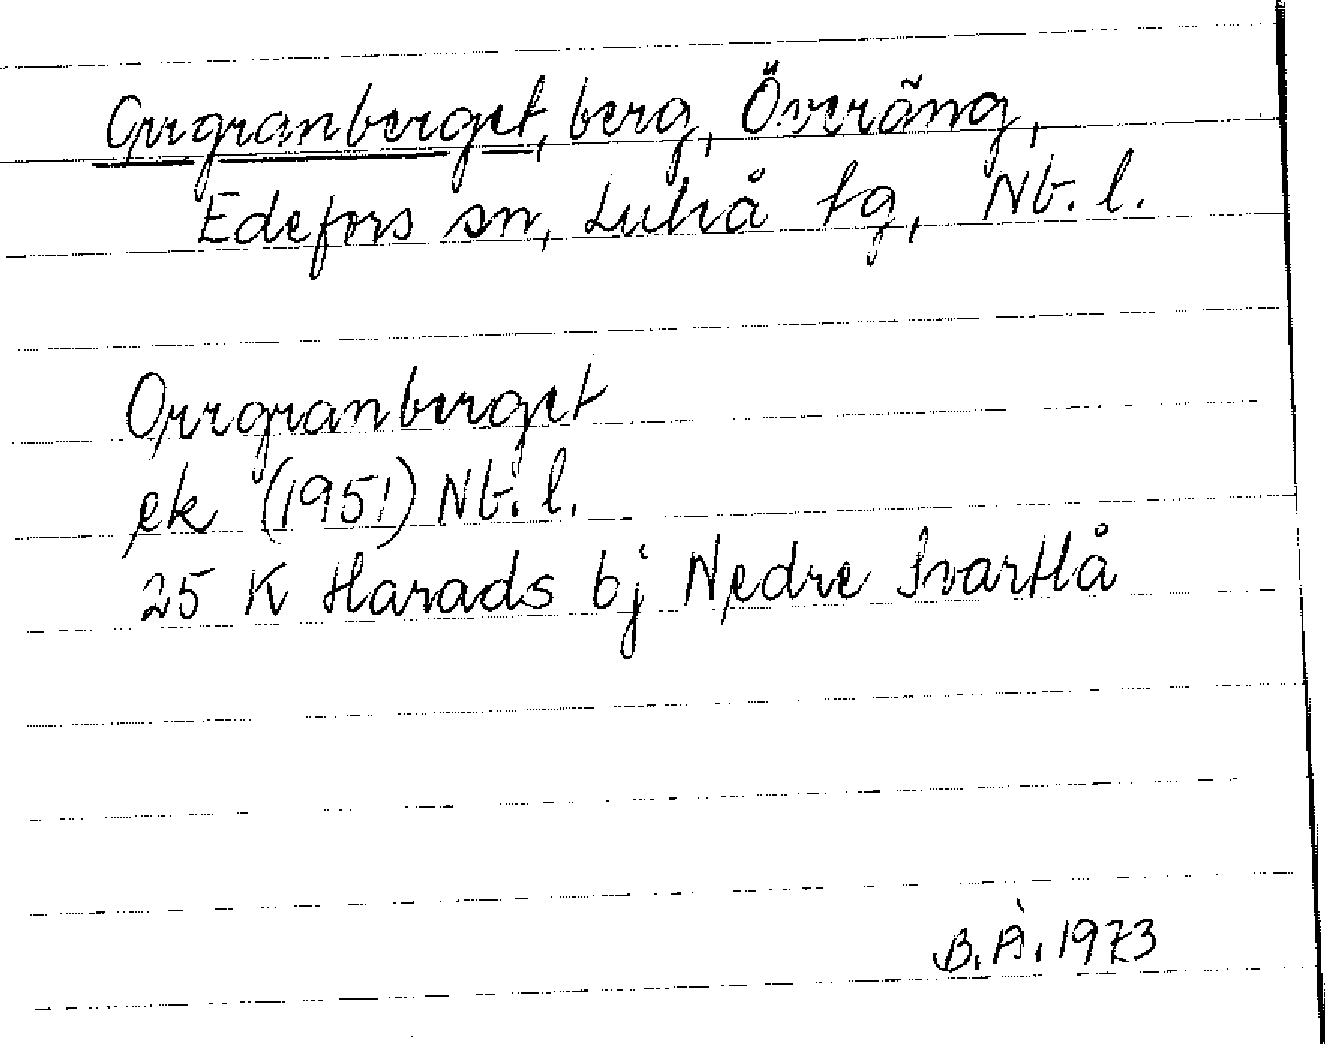 Orrgranberget, berg, Överäng,
Edefors sn, Luleå tg, Nb. l.
Orrgranberget
ek (1951) Nb. l.
25 K Harads bj Nedre Svartlå
B.Å. 1973